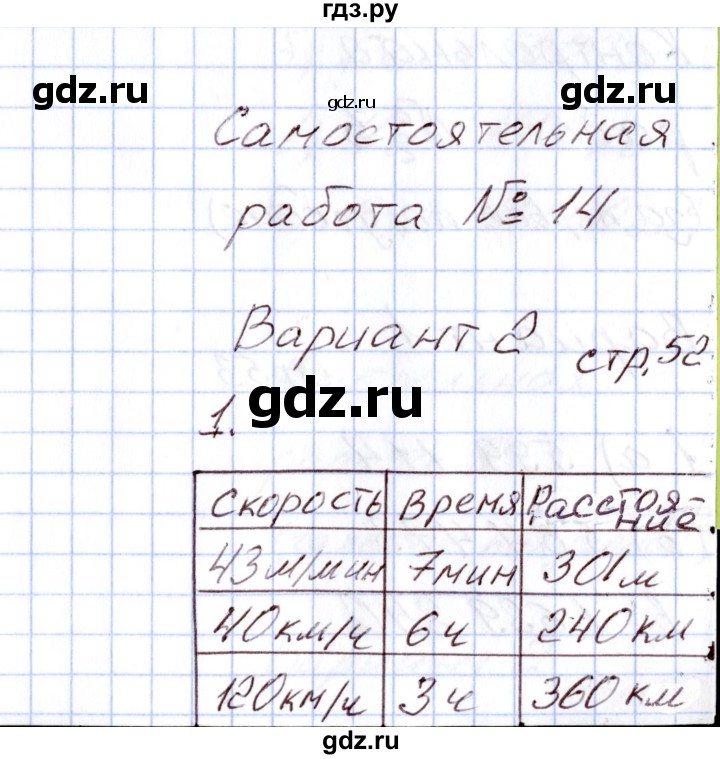 гдз.ру
gdz.ru
gdz.ru
gdz.ru
Самостоятельная
работа № 14
Вариант 2 стр. 52
1.
gdz.ru
Скорость Время Расстоя-
ние
43м/мин 7мин 301м
40км/ч 6ч 240км
120км/ч 3ч 360км
gdz.ru